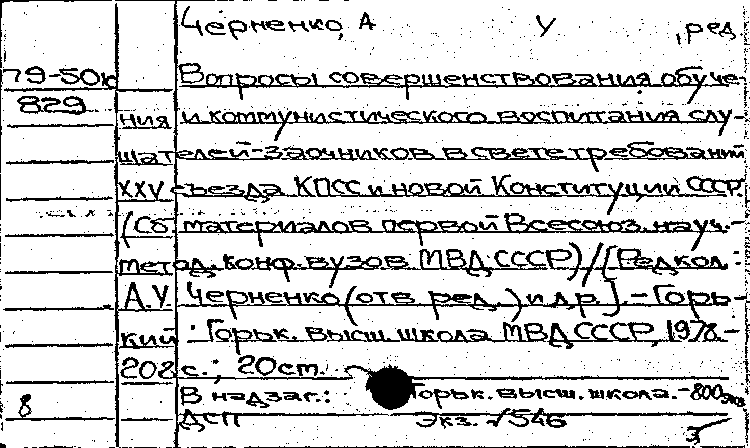 Черненко, А У , ред.
79-50к Вопросы совершенствования обуче-
829
ния и коммунистического воспитания слу-
шателей-заочников в свете требований
XXV съезда КПСС и новой Конституции СССР.
(Сб. материалов первой Всесоюз. науч.-
метод. конф. вузов МВД СССР) / [Редкол.:
А.У. Черненко (отв. ред.) и др.]. - Горь-
кий : Горьк. высш. школа МВД СССР, 1978. -
202 с.; 20 см.
В надзаг.: Горьк. высш. школа. - 800 экз
8 ДСП Экз. √546